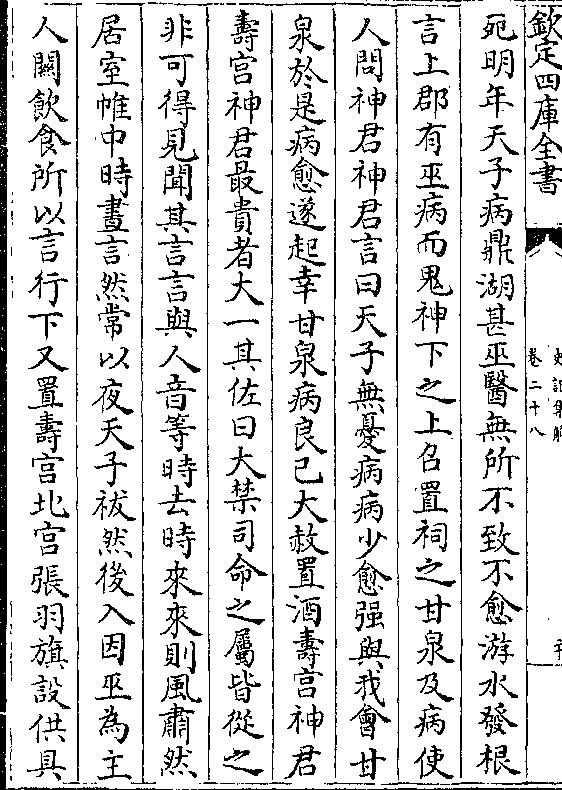 欽定四庫全書
卷二十八
宛明年天子病鼎湖甚巫醫無所不致不愈游水發根
言上郡有巫病而鬼神下之上召置祠之甘泉及病使
人問神君神君言曰天子無憂病病少愈强與我會甘
泉於是病愈遂起幸甘泉病良已大赦置酒壽宫神君
壽宫神君最貴者大一其佐曰大禁司命之屬皆從之
非可得見聞其言言與人音等時去時來來則風肅然
居室帷中時晝言然常以夜天子祓然後入因巫為主
人關飲食所以言行下又置壽宫北宫張羽旗設供具